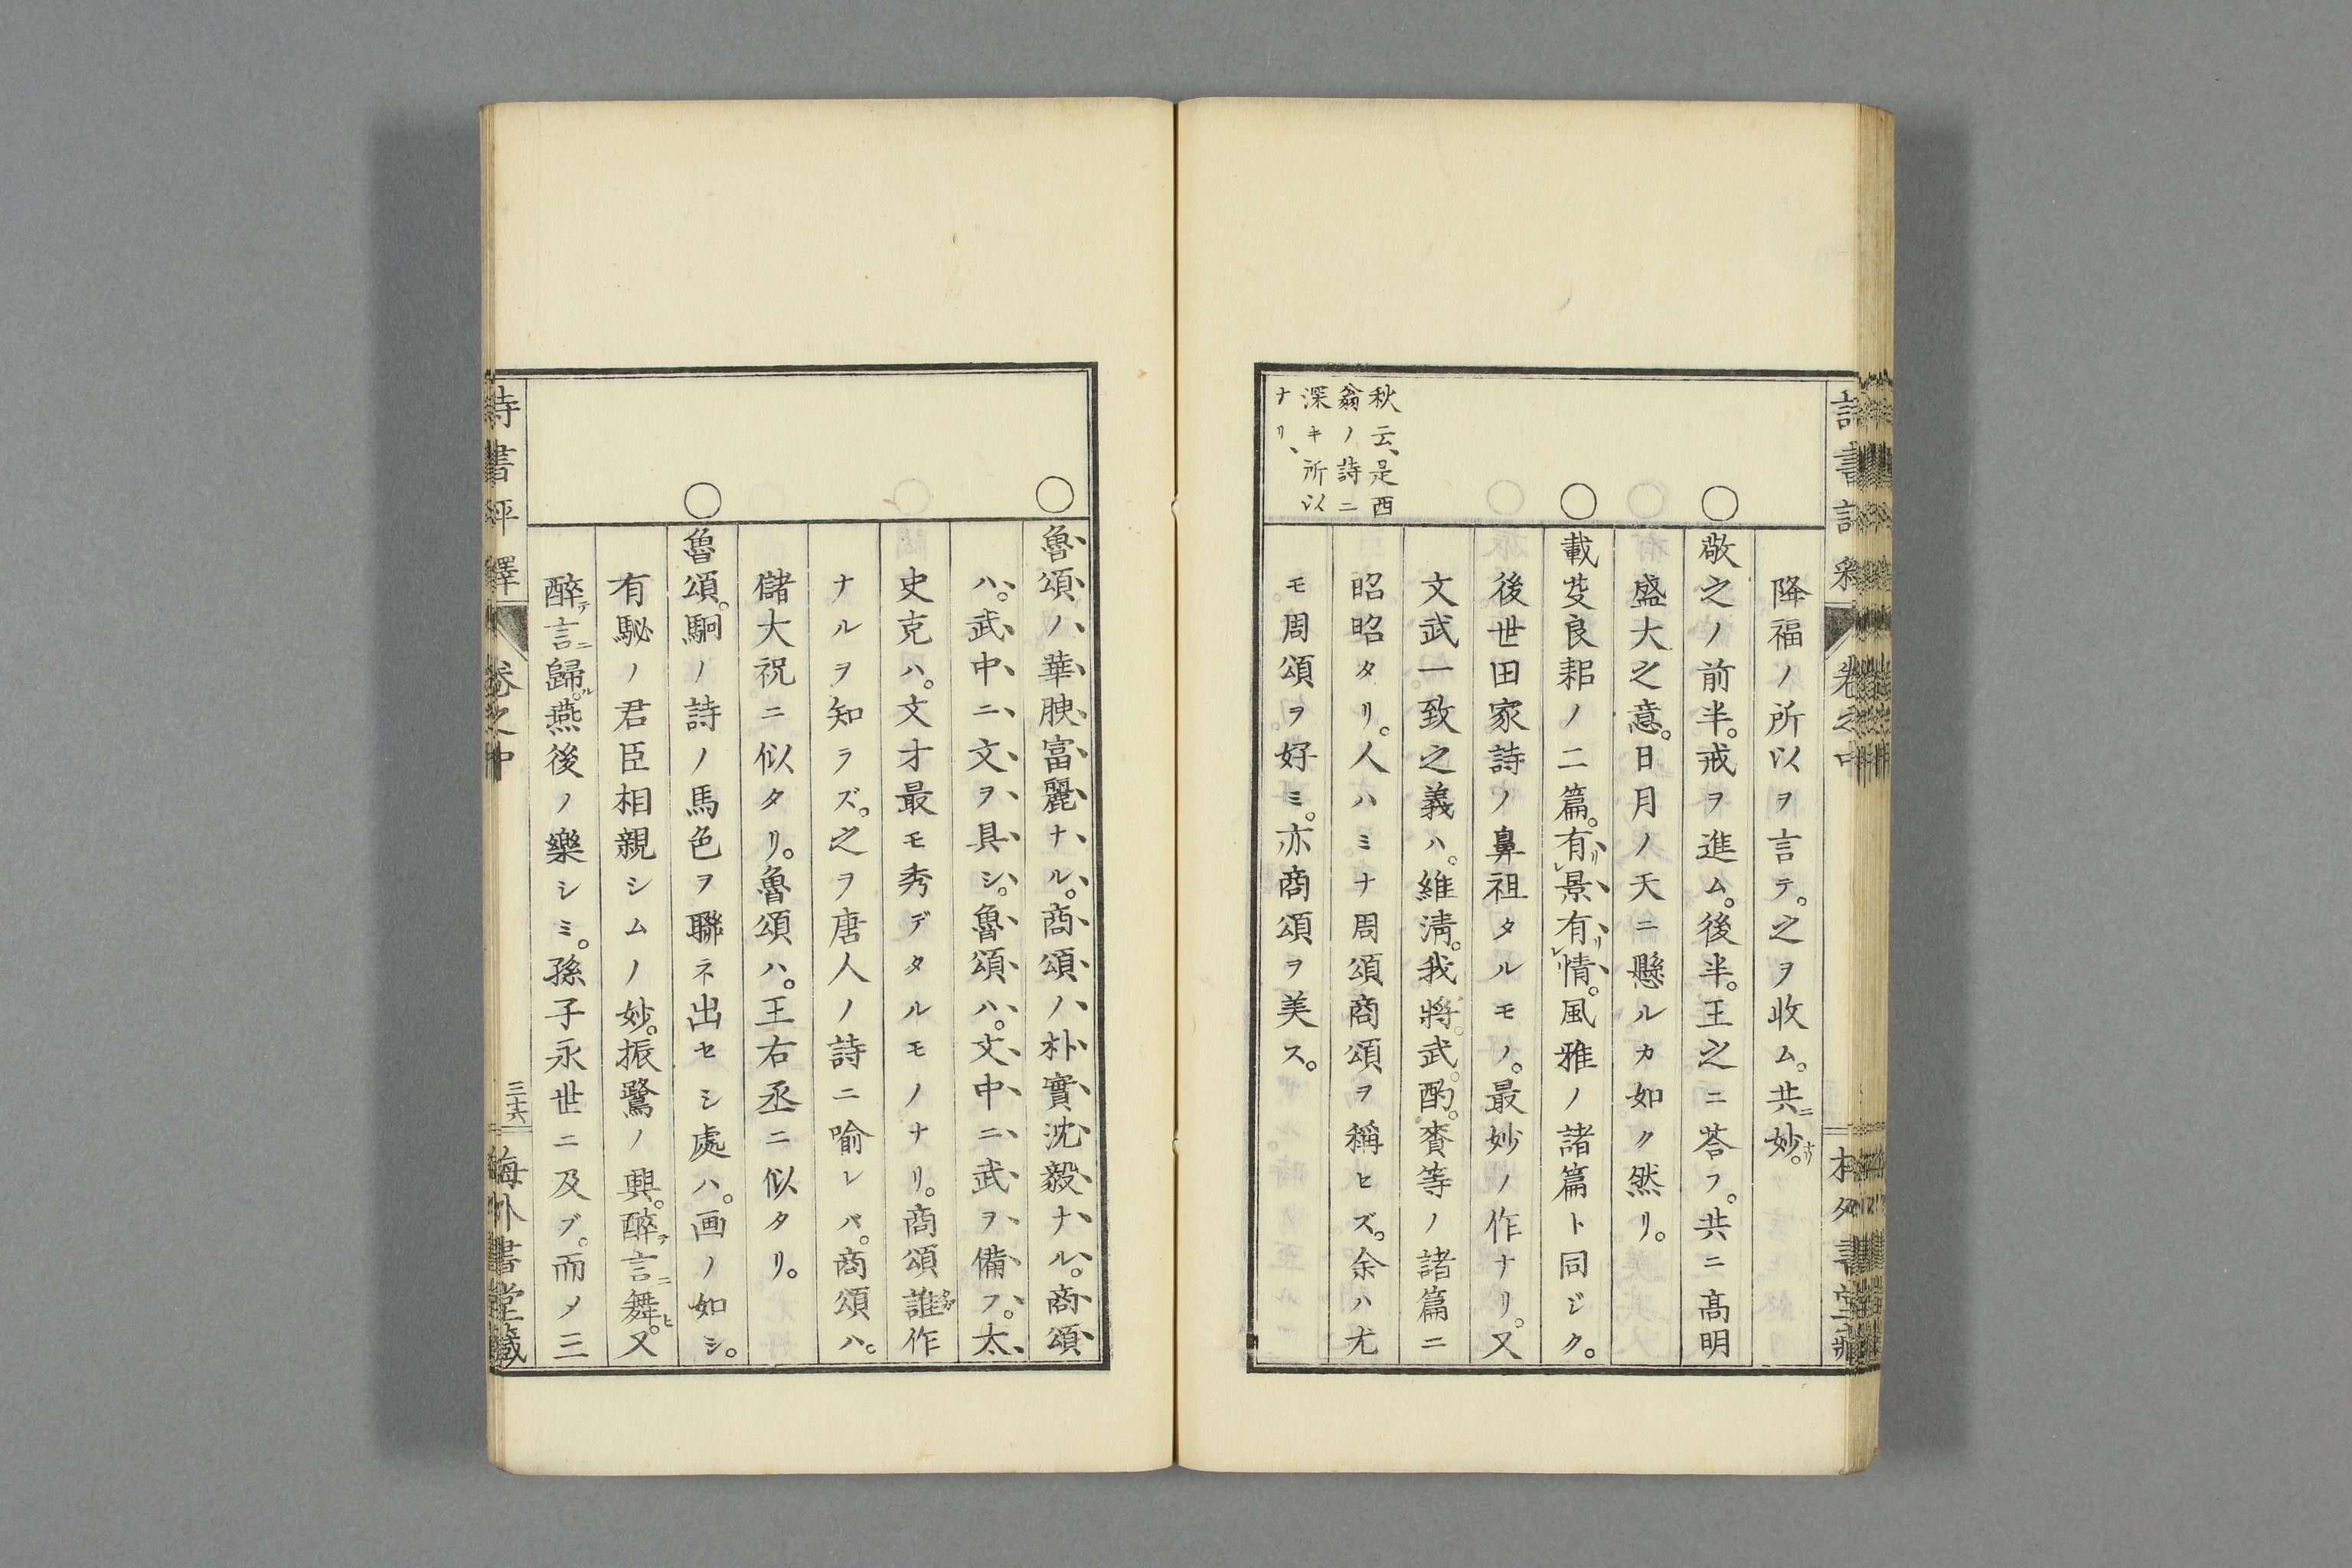 降福ノ所以ヲ言テ。之ヲ收ム。共ニ妙。ナリ
敬之ノ前半。戒ヲ進ム。後半。王之ニ荅フ。共ニ高明
盛大之意。日月ノ天ニ懸ルカ如ク然リ。
載芟良耜ノ二篇。有リレ景有リレ情。風雅ノ諸篇ト同ジク。
後世田家詩ノ鼻祖タルモノ。最妙ノ作ナリ。又
文武一致之義ハ。維淸。我將。武。酌。賚等ノ諸篇ニ
昭昭タリ。人ハミナ周頌商頌ヲ稱ヒズ。余ハ尤
モ周頌ヲ好ミ。亦商頌ヲ美ス。
秋云、是西
翁ノ詩ニ
深キ所以
ナリ、
魯頌ノ華腴富麗ナル。商頌ノ朴實沈毅ナル。商頌
ハ。武中ニ文ヲ具シ。魯頌ハ。文中ニ武ヲ備フ。太
史克ハ。文才最モ秀デタルモノナリ。商頌誰作
ナルヲ知ラズ。之ヲ唐人ノ詩ニ喻レバ。商頌ハ。
儲大祝ニ似タリ。魯頌ハ。王右丞ニ似タリ。
魯頌。駉ノ詩ノ馬色ヲ聯ネ出セシ處ハ。画ノ如シ。
有駜ノ君臣相親シムノ妙。振鷺ノ興。醉テ言ニ舞ヒ。又
醉テ言ニ歸ル。燕後ノ樂シミ。孫子永世ニ及ブ。而メ三
詩書評釋
卷之中
三十六
梅外書堂藏